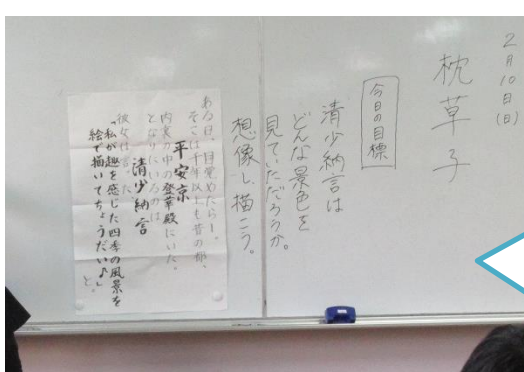 ２月１０日(日)
枕草子
今日の目標
清少納言は
どんな景色を
見ていただろうか。
想像し、描こう。
ある日、目覚めたらー。
そこは千年以上も昔の都、
平安京
内裏の中の登華殿にいた。
となりにいるのは
清少納言
彼女は言った。
「私が趣を感じた四季の風景を
絵で描いてちょうだい♪」
と。